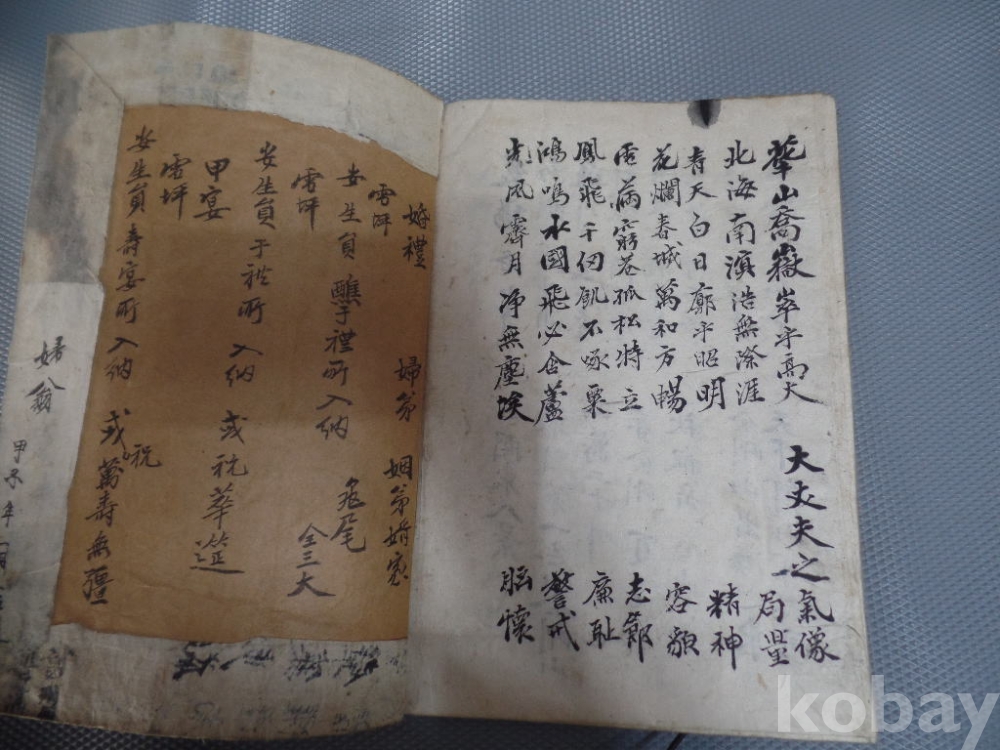 華山喬嶽崒乎高大
北海南溟浩無際涯
靑天白日廓乎昭明
花爛春城萬和方暢
雪滿窮巷孤松特立
鳳飛千仞飢不啄粟
鴻鳴水國飛必含蘆
光風霽月淨無塵埃
大丈夫之氣像
局量
精神
容貌
志節
廉恥
警戒
胸懷
婚禮 婦翁 姻翁婚家
雪坪
安生員醮子禮所入納 兎尾
雪坪 仝三大
安生員于禮所入納 或祝華筵
甲宴
雪坪
安生員壽宴所入納 或祝萬壽無疆
婦翁
甲子年
kobay